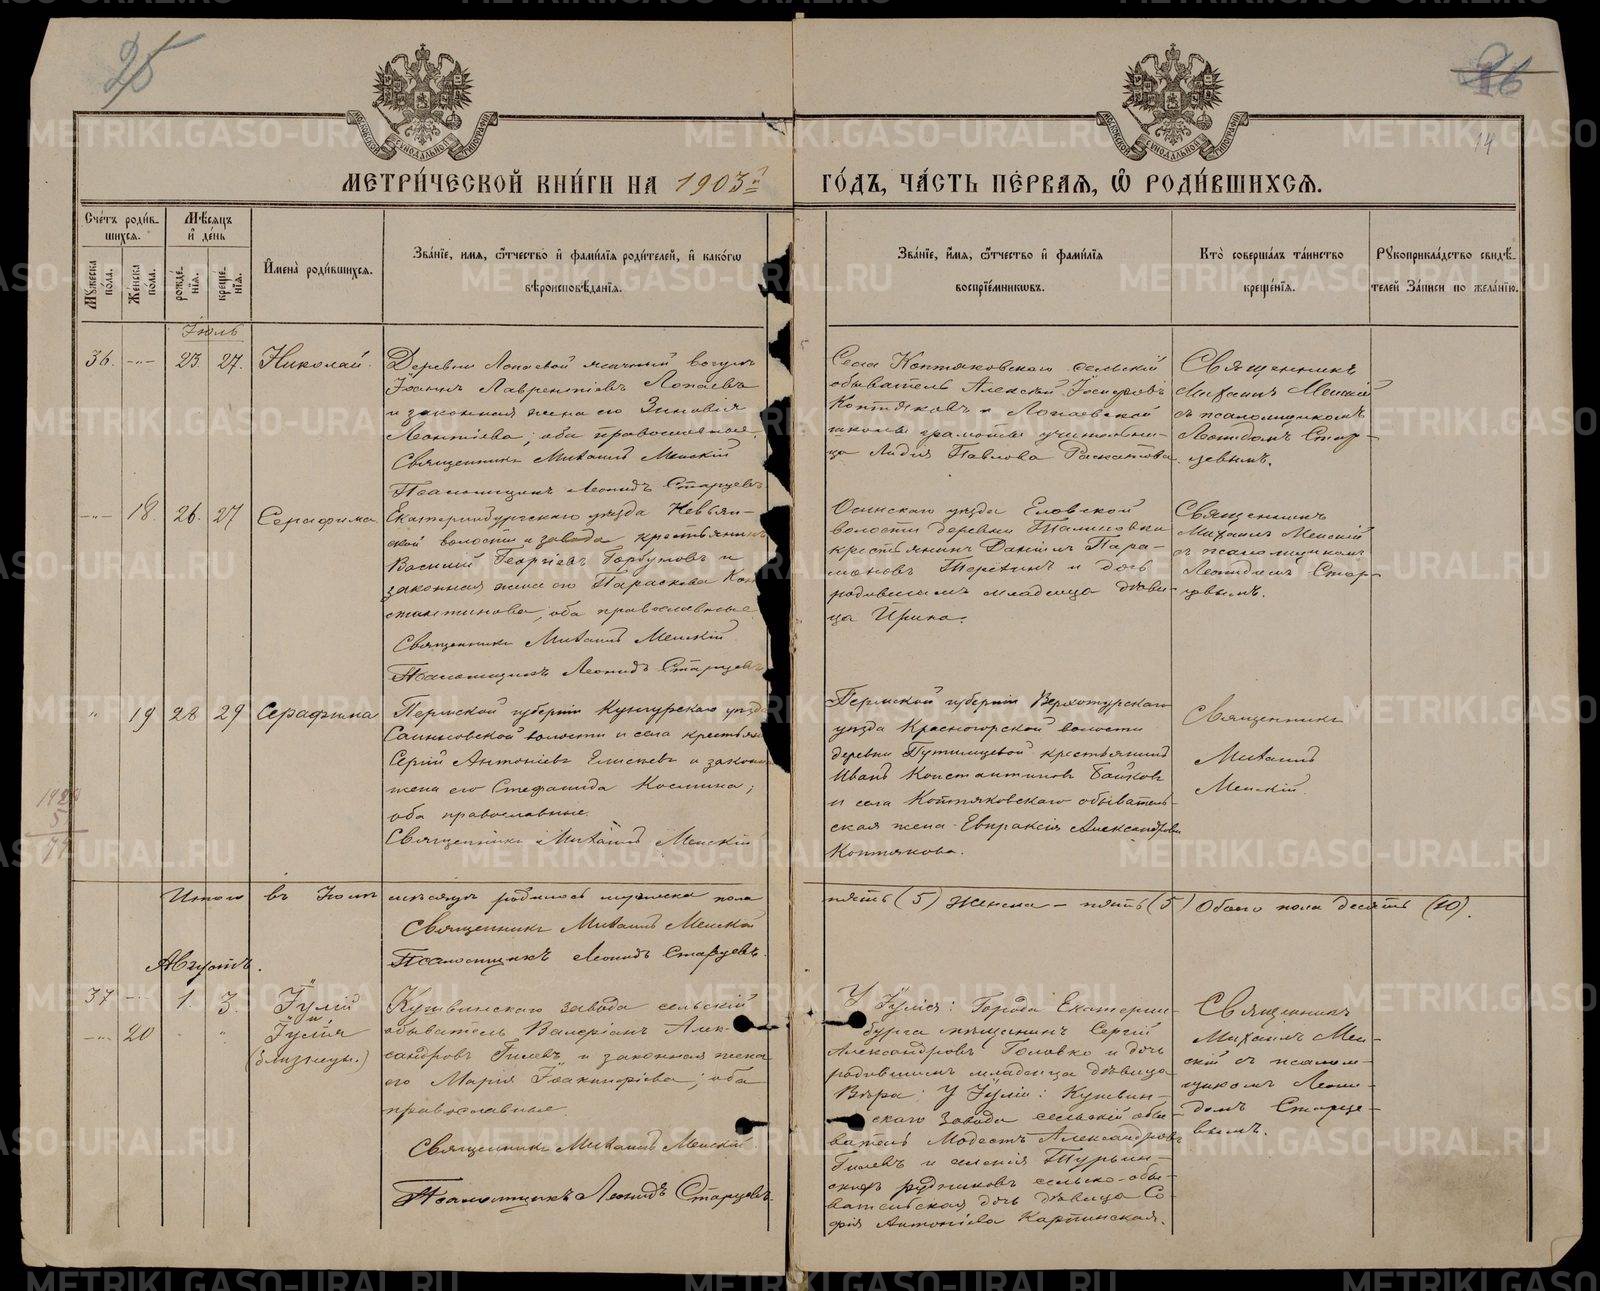 25
26
14
МЕТРИ́ЧЕСКОЙ КНИ́ГИ НА 1903й
ГО́ДЪ, ЧА́СТЬ ПЕ́РВАЯ, Ѡ РОДИ́ВШИХСЯ.
Сче́тъ роди́в-
шихся.
Му́жеска по́ла.
Же́нска по́ла.
Мѣ́сяцъ
и де́нь
рожде́-
нія.
креще́-
нія.
И́мена роди́вшихся.
Зва́ніе, имя, ѻ́тчество и фами́лія роди́телей, и како́гѡ
вѣроисповѣ́данія.
Зва́ніе, и́мя, ѻ́тчество и фами́лія
воспріе́мниковъ.
Кто̀ соверша́лъ та́инство
креще́нія.
Рукоприкла́дство свидѣ́-
телей за́писи по жела́нію.
Іюль
36. -"- 23. 27. Николай.
Деревни Лопаевой ясачный вогулъ
Іоаннъ Лаврентіевъ Лопаевъ
и законная жена его Зиновія
Леонтіева; оба православные.
Священникъ Михаилъ Менскій
Псаломщикъ Леонидъ Старцевъ
Села Коптяковскаго сельскій
обыватель Алексѣй Іосифовъ
Коптяковъ и Лопаевской
школы грамоты учительни-
ца Лидія Павлова Раскатова
Священникъ
Михаилъ Менскій
съ псаломщикомъ
Леонидомъ Стар-
цевымъ.
-"- 18. 26. 27 Серафима
Екатеринбургскаго уѣзда Невьян-
ской волости и завода крестьянинъ
Василій Георгіевъ Горбуновъ и
законная жена его Параскева Кон
стантинова, оба православные
Священникъ Михаилъ Менскій
Псаломщикъ Леонидъ Старцевъ
Осинскаго уѣзда Еловской
волости деревни
крестьянинъ Даніилъ Пара-
моновъ и дочь
родившаго младенца дѣви-
ца Ирина.
Священникъ
Михаилъ Менскій
съ псаломщикомъ
Леонидомъ Стар-
цевымъ.
" 19 28 29 Серафима
Пермской губерніи Кунгурскаго уѣзда
волости и села крестьян
Сергій Антоніевъ Елисѣевъ и законн
жена его Стефанида Космина;
оба православные.
Священникъ Михаилъ Менскій
Пермской губерніи Верхотурскаго
уѣзда Красногорской волости
деревни Путимцевой крестьянинъ
Иванъ Константиновъ Байковъ
и села Коптяковскаго обыватель-
ская жена Евпраксія Александрова
Коптякова.
Священникъ
Михаилъ
Менскій.
Итого въ Іюлѣ мѣсяцѣ родилось мужеска пола
пять (5) Женска - пять (5) Обоего пола десять (10).
Священникъ Михаилъ Менскій
Псаломщикъ Леонидъ Старцевъ.
Августъ.
37 -"- 1. 3. Іулій
и
-"- 20 " " Іулія
(близнецы.)
Кушвинскаго завода сельскій
обыватель Валеріанъ Алек-
сандровъ Гилевъ и законная жена
его Марія Іоакинфіева; оба
православные.
Священникъ Михаилъ Менскій
Псаломщикъ Леонидъ Старцевъ.
У Іулія: Города Екатерин-
бурга мѣщанинъ Сергій
Александровъ Головко и дочь
родившимъ младенца дѣвица
Вѣра; У Іуліи: Кушвин-
скаго завода сельскій обы-
ватель Модестъ Александровъ
Гилевъ и Турьин-
скихъ рудниковъ сельско-обы-
вательская дочь дѣвица Со-
фія Антоніева Карпинская.
Священникъ
Михаилъ Мен-
скій съ псалом-
щикомъ Леони-
домъ Старце-
вымъ.
METRIKI.GASO-URAL.RU